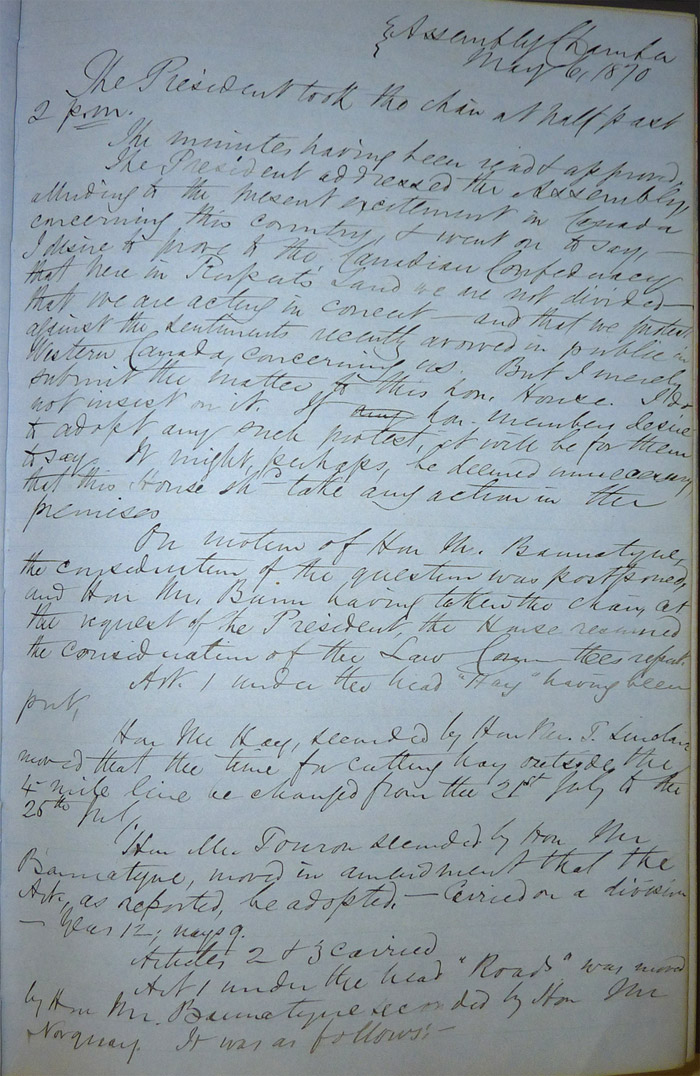 Assembly Chamber
May 6, 1870
The President took the chair at half past
2 p.m.
The minutes having been read & approved,
The President addressed the Assembly,
alluding to the present excitement in Canada
concerning this country, & went on to say, —
I desire to prove to the Canadian Confederacy
that here in Rupert's Land we are not divided —
that we are acting in concert — and that we protest
against the sentiments recently avowed in public in
Western Canada, concerning us. But I merely
submit the matter to this hon. House. I do
not insist on it. If any hon. members desire
to adopt any such protest, it will be for them
to say. It might, perhaps, be deemed unnecessary
that this House shd take any action in the
premises
On motion of Hon Mr. Bannatyne,
the consideration of the question was postponed,
and Hon Mr. Bunn having taken the chair, at
the request of the President, the House resumed
the consideration of the Law Committees report.
Art. 1 under the head "Hay" having been
put,
Hon Mr Hay, seconded by Hon Mr. T. Sinclair
moved that the time for cutting hay outside the
4 mile line be changed from the 21st July to the
25th July,
Hon Mr Touron seconded by Hon Mr
Bannatyne, moved in amendment that the
Art., as reported, be adopted. — Carried on a division
— Yeas 12; nays 9.
Articles 2 & 3 carried
Art 1 under the head "Roads" was moved
by Hon Mr. Bannatyne seconded by Hon Mr
Norquay. It was as follows: —